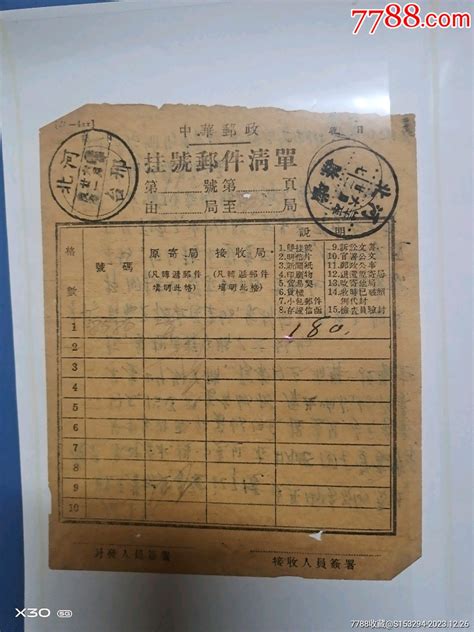 7788.com
中華郵政
掛號郵件清單
第 號第 頁
由 局至 局
河北
邢台
格數
號碼
原寄局
(凡轉遞郵件
填明此格)
接收局
(凡轉遞郵件
填明此格)
說明
1.雙掛號
2.明信片
3.新聞紙
4.印刷物
5.貿易契
6.貨樣
7.小包郵件
8.存證信函
9.訴訟文書
10.官署公文
11.郵政公事
12.退還原寄局
13.改寄他局
15.檢查員驗封
1
180.
2
3
4
5
6
7
8
9
10
封發人員簽署
接收人員簽署
X30 5G
7788收藏@S153294-2023.12.26